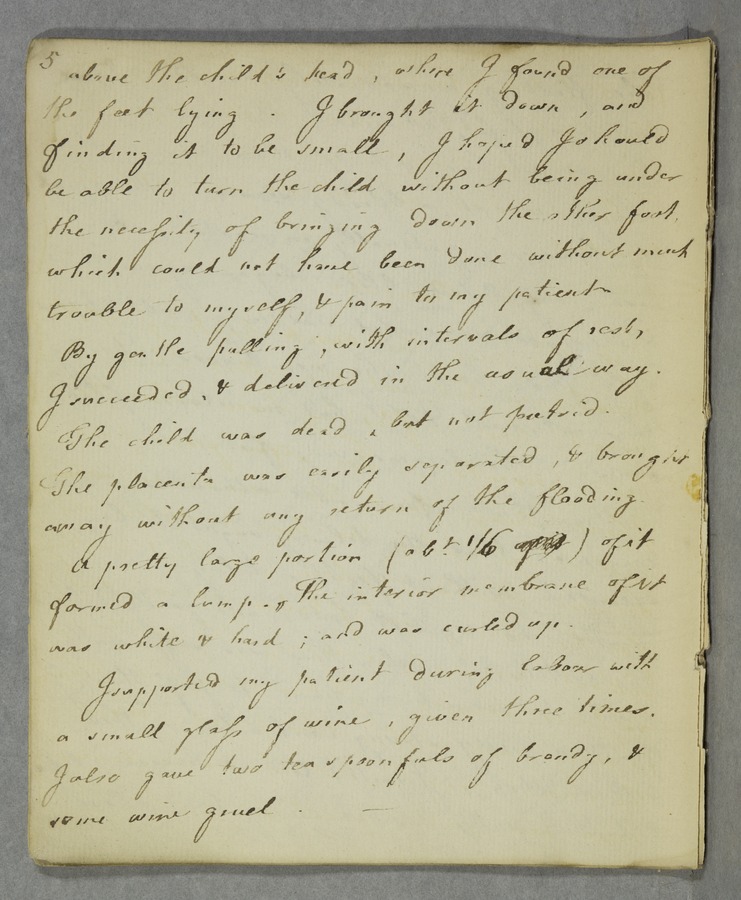 5
above the child's head, where I found one of
the feet lying. I brought it down, and
finding it to be small, I hoped I should
be able to turn the child without being under
the necessity of bringing down the other foot,
which could not have been done without much
trouble to myself, & pain to my patient
By gentle pulling, with intervals of rest,
I succeeded, & delivered in the usual way.
The child was dead, but not putrid.
The placenta was easily separated, & brought
away without any return of the flooding.
A pretty large portion (abt. 1/6 ) of it
formed a lump. The interior membrane of it
was white & hard; and was curled up.
I supported my patient during labour with
a small glass of wine, given three times.
I also gave two teaspoonfuls of brandy, &
some wine gruel. —